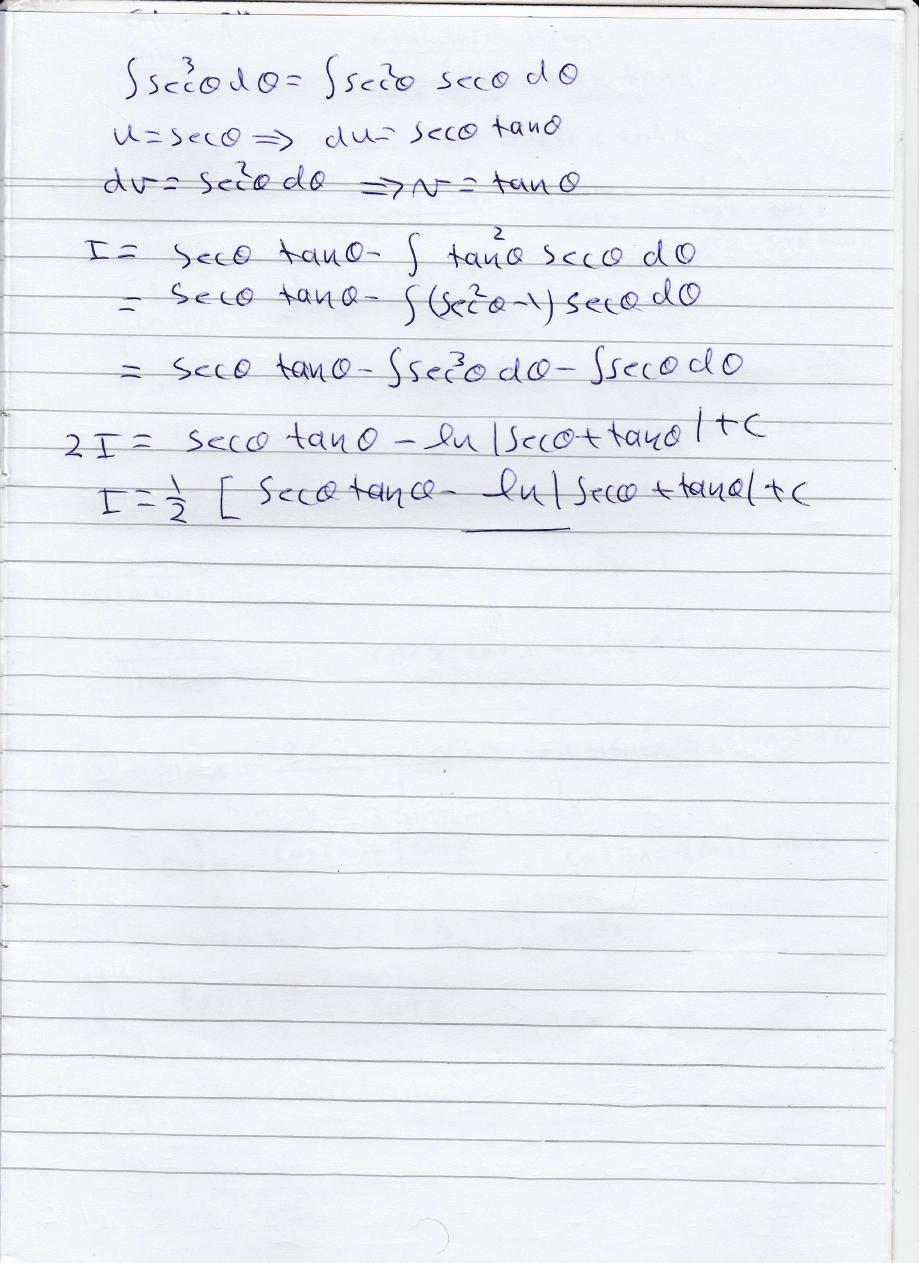 ∫sec³θdθ = ∫sec²θ secθ dθ
u = secθ ⇒ du = secθ tanθ
dv = sec²θ dθ ⇒ v = tanθ
I = secθ tanθ - ∫ tan²θ secθ dθ
= secθ tanθ - ∫(sec²θ-1) secθ dθ
= secθ tanθ - ∫sec³θ dθ - ∫secθ dθ
2I = secθ tanθ - ln|secθ+tanθ|+c
I = 1/2 [ secθ tanθ - ln|secθ+tanθ|+c